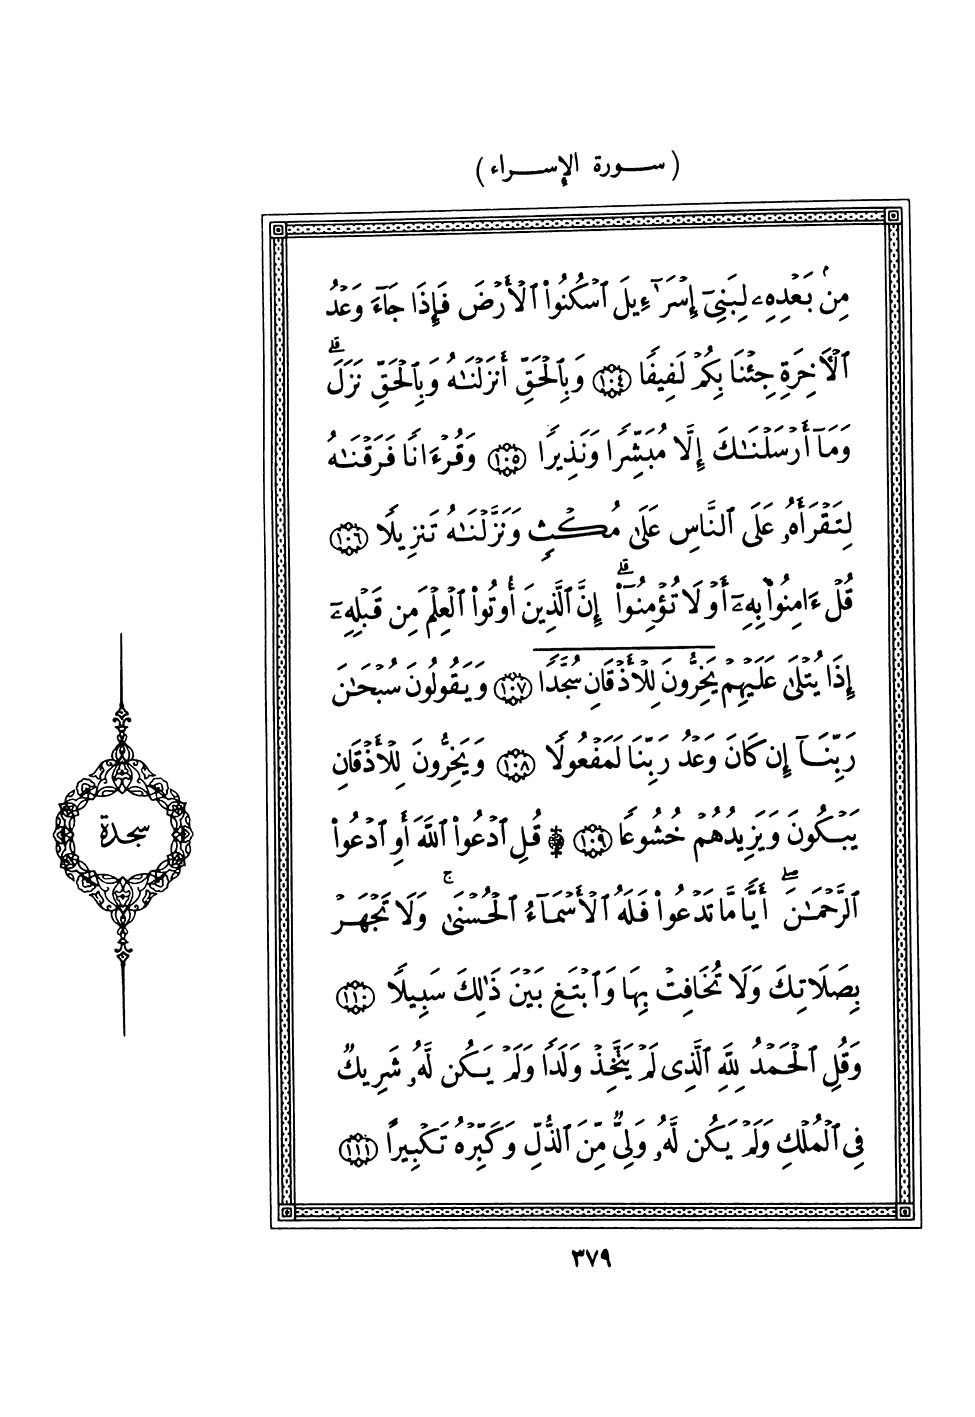 (سورة الإسراء)
مِنۢ بَعۡدِهِۦ لِبَنِيٓ إِسۡرَٰٓءِيلَ ٱسۡكُنُواْ ٱلۡأَرۡضَ فَإِذَا جَآءَ وَعۡدُ
ٱلۡأٓخِرَةِ جِئۡنَا بِكُمۡ لَفِيفٗا ١٠٤ وَبِٱلۡحَقِّ أَنزَلۡنَٰهُ وَبِٱلۡحَقِّ نَزَلَۗ
وَمَآ أَرۡسَلۡنَٰكَ إِلَّا مُبَشِّرٗا وَنَذِيرٗا ١٠٥ وَقُرۡءَانٗا فَرَقۡنَٰهُ
لِتَقۡرَأَهُۥ عَلَى ٱلنَّاسِ عَلَىٰ مُكۡثٖ وَنَزَّلۡنَٰهُ تَنزِيلٗا ١٠٦
قُلۡ ءَامِنُواْ بِهِۦٓ أَوۡ لَا تُؤۡمِنُوٓاْۗ إِنَّ ٱلَّذِينَ أُوتُواْ ٱلۡعِلۡمَ مِن قَبۡلِهِۦٓ
إِذَا يُتۡلَىٰ عَلَيۡهِمۡ يَخِرُّونَ لِلۡأَذۡقَانِ سُجَّدٗا ١٠٧ وَيَقُولُونَ سُبۡحَٰنَ
رَبِّنَآ إِن كَانَ وَعۡدُ رَبِّنَا لَمَفۡعُولٗا ١٠٨ وَيَخِرُّونَ لِلۡأَذۡقَانِ
يَبۡكُونَ وَيَزِيدُهُمۡ خُشُوعٗا ١٠٩ ۩ قُلِ ٱدۡعُواْ ٱللَّهَ أَوِ ٱدۡعُواْ
ٱلرَّحۡمَٰنَۖ أَيّٗا مَّا تَدۡعُواْ فَلَهُ ٱلۡأَسۡمَآءُ ٱلۡحُسۡنَىٰۚ وَلَا تَجۡهَرۡ
بِصَلَاتِكَ وَلَا تُخَافِتۡ بِهَا وَٱبۡتَغِ بَيۡنَ ذَٰلِكَ سَبِيلٗا ١١٠
وَقُلِ ٱلۡحَمۡدُ لِلَّهِ ٱلَّذِي لَمۡ يَتَّخِذۡ وَلَدٗا وَلَمۡ يَكُن لَّهُۥ شَرِيكٞ
فِي ٱلۡمُلۡكِ وَلَمۡ يَكُن لَّهُۥ وَلِيّٞ مِّنَ ٱلذُّلِّ وَكَبِّرۡهُ تَكۡبِيرَۢا ١١١
سجدة
٣٧٩